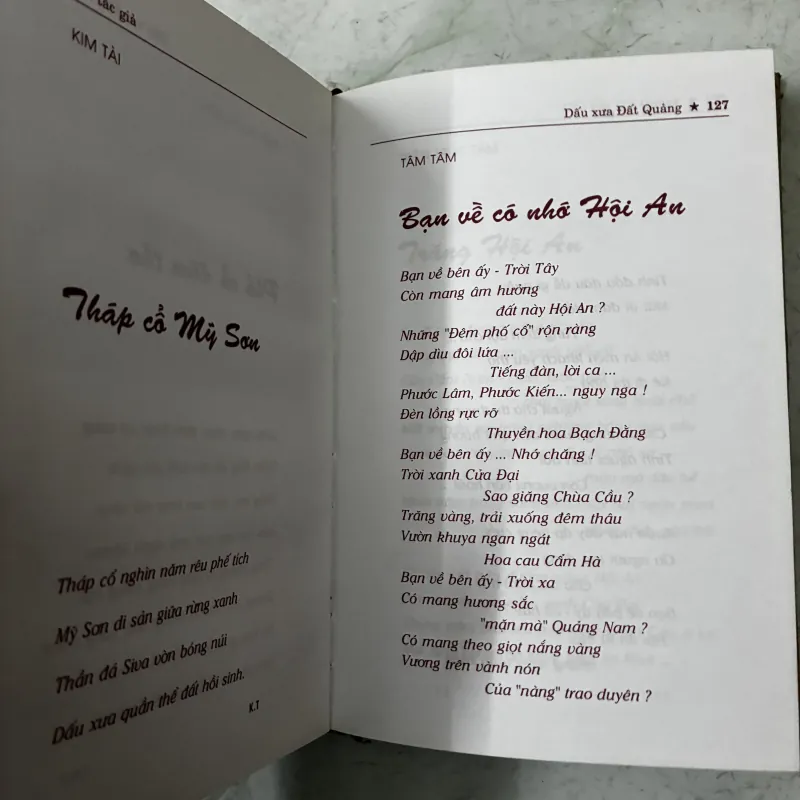 tác giả
KIM TẢI
Tháp cổ Mỹ Sơn
Tháp cổ nghìn năm rêu phế tích
Mỹ Sơn di sản giữa rừng xanh
Thần đá Siva vờn bóng núi
Dấu xưa quần thể đất hồi sinh.
K.T
Dấu xưa Đất Quảng ★ 127
TÂM TÂM
Bạn về có nhớ Hội An
Bạn về bên ấy - Trời Tây
Còn mang âm hưởng
đất này Hội An ?
Những "Đêm phố cổ" rộn ràng
Dập dìu đôi lứa ...
Tiếng đàn, lời ca ...
Phước Lâm, Phước Kiến... nguy nga !
Đèn lồng rực rỡ
Thuyền hoa Bạch Đằng
Bạn về bên ấy ... Nhớ chăng !
Trời xanh Cửa Đại
Sao giăng Chùa Cầu ?
Trăng vàng, trải xuống đêm thâu
Vườn khuya ngan ngát
Hoa cau Cẩm Hà
Bạn về bên ấy - Trời xa
Có mang hương sắc
"mặn mà" Quảng Nam ?
Có mang theo giọt nắng vàng
Vương trên vành nón
Của "nàng" trao duyên ?